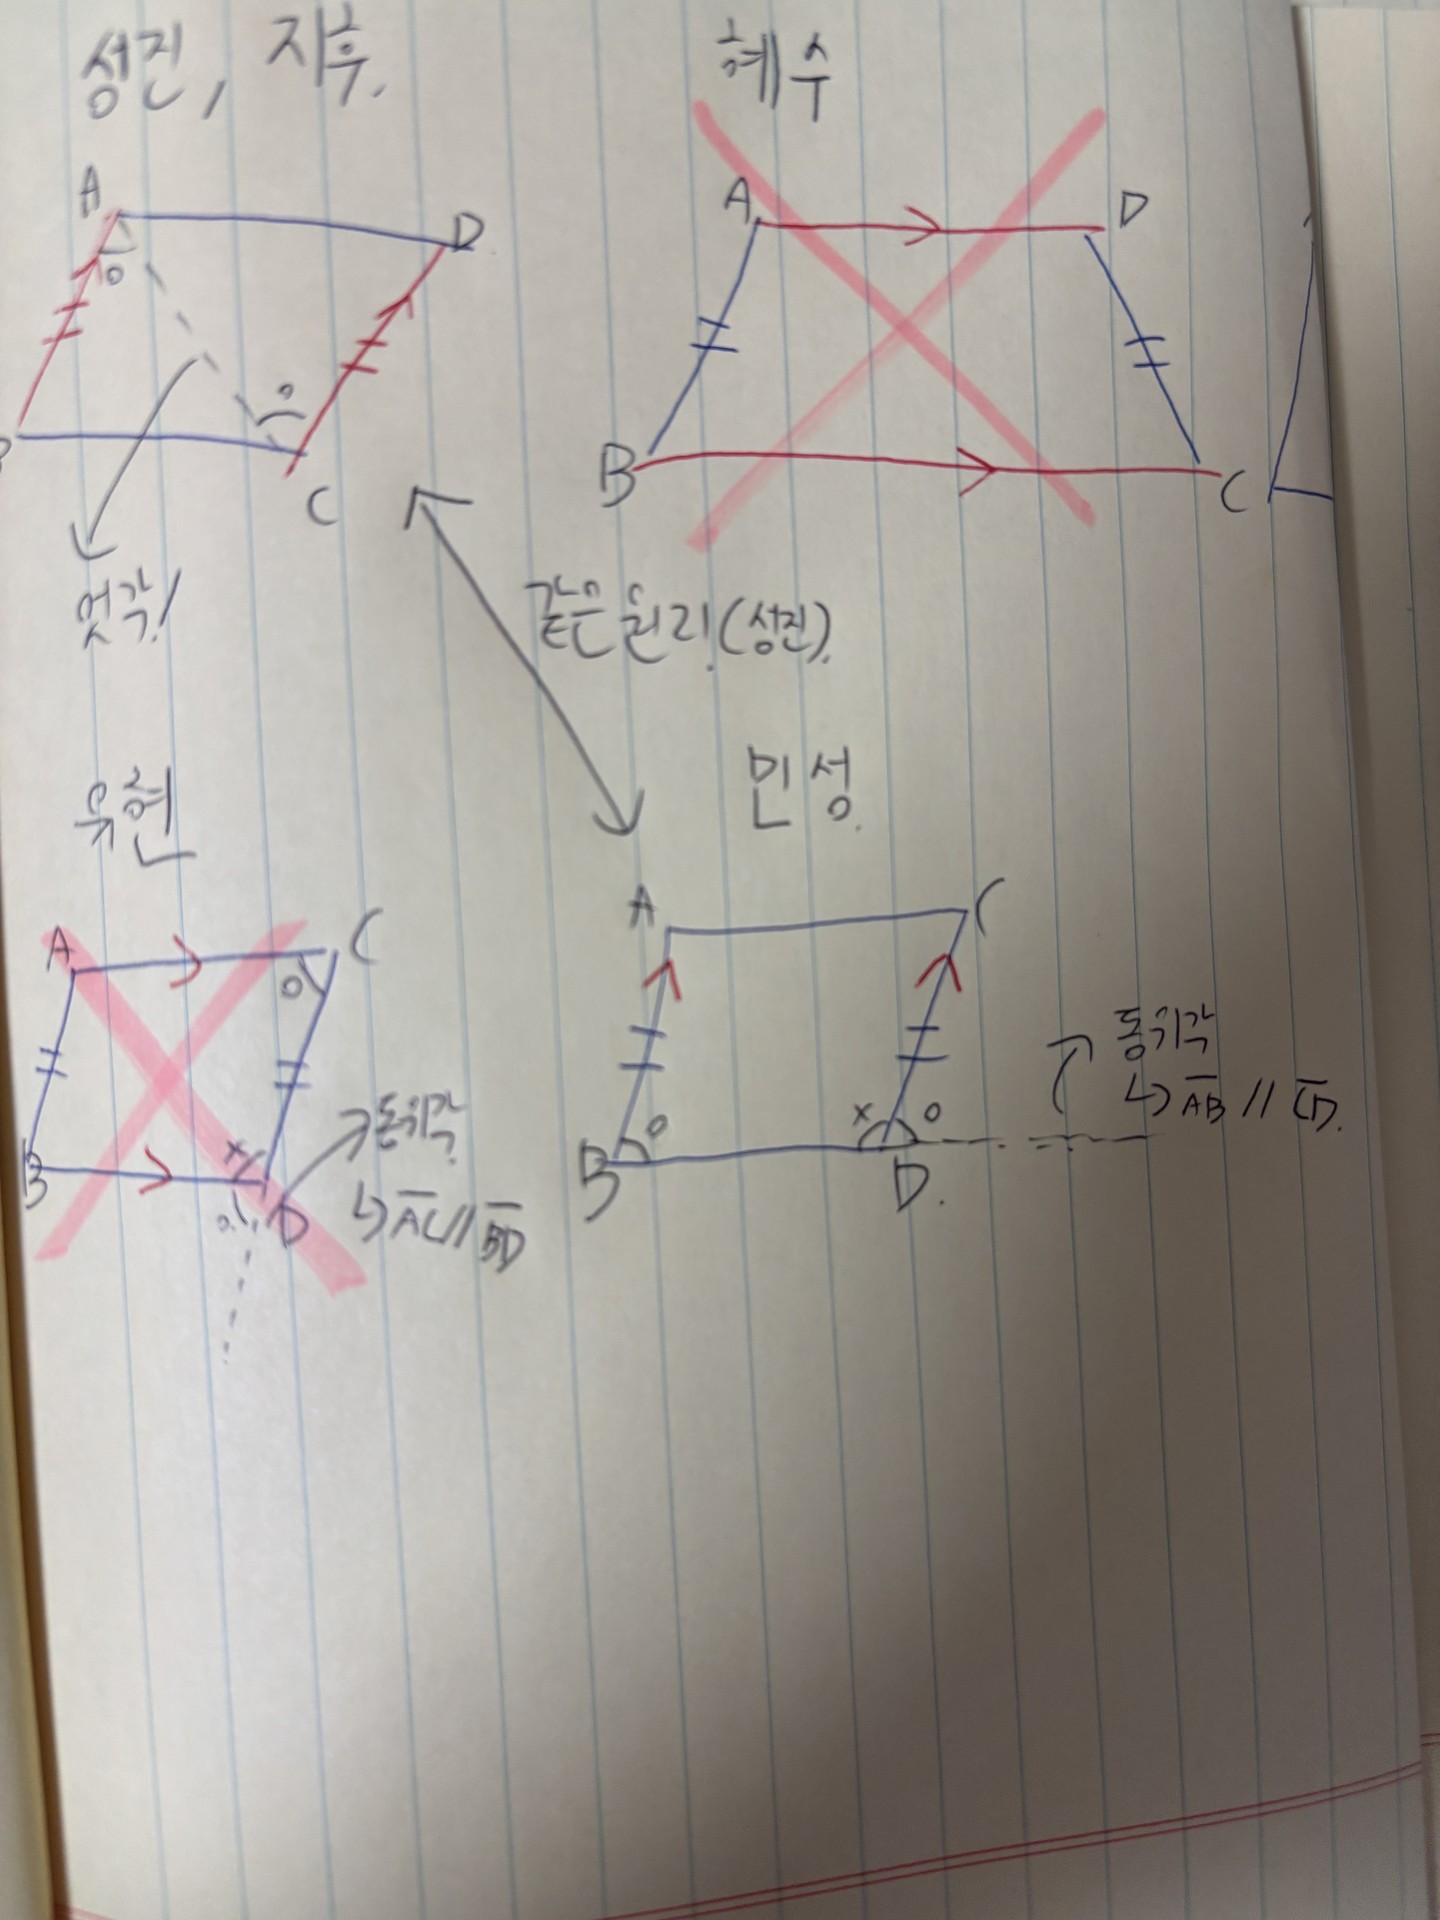 성진, 지후.
A
D
C
엇각!
혜수
A
D
B
C
같은 원리.(성진).
유현
A
C
B
D
동위각
↳ AC // BD
민성
A
C
B
D.
동위각
↳ AB // CD.